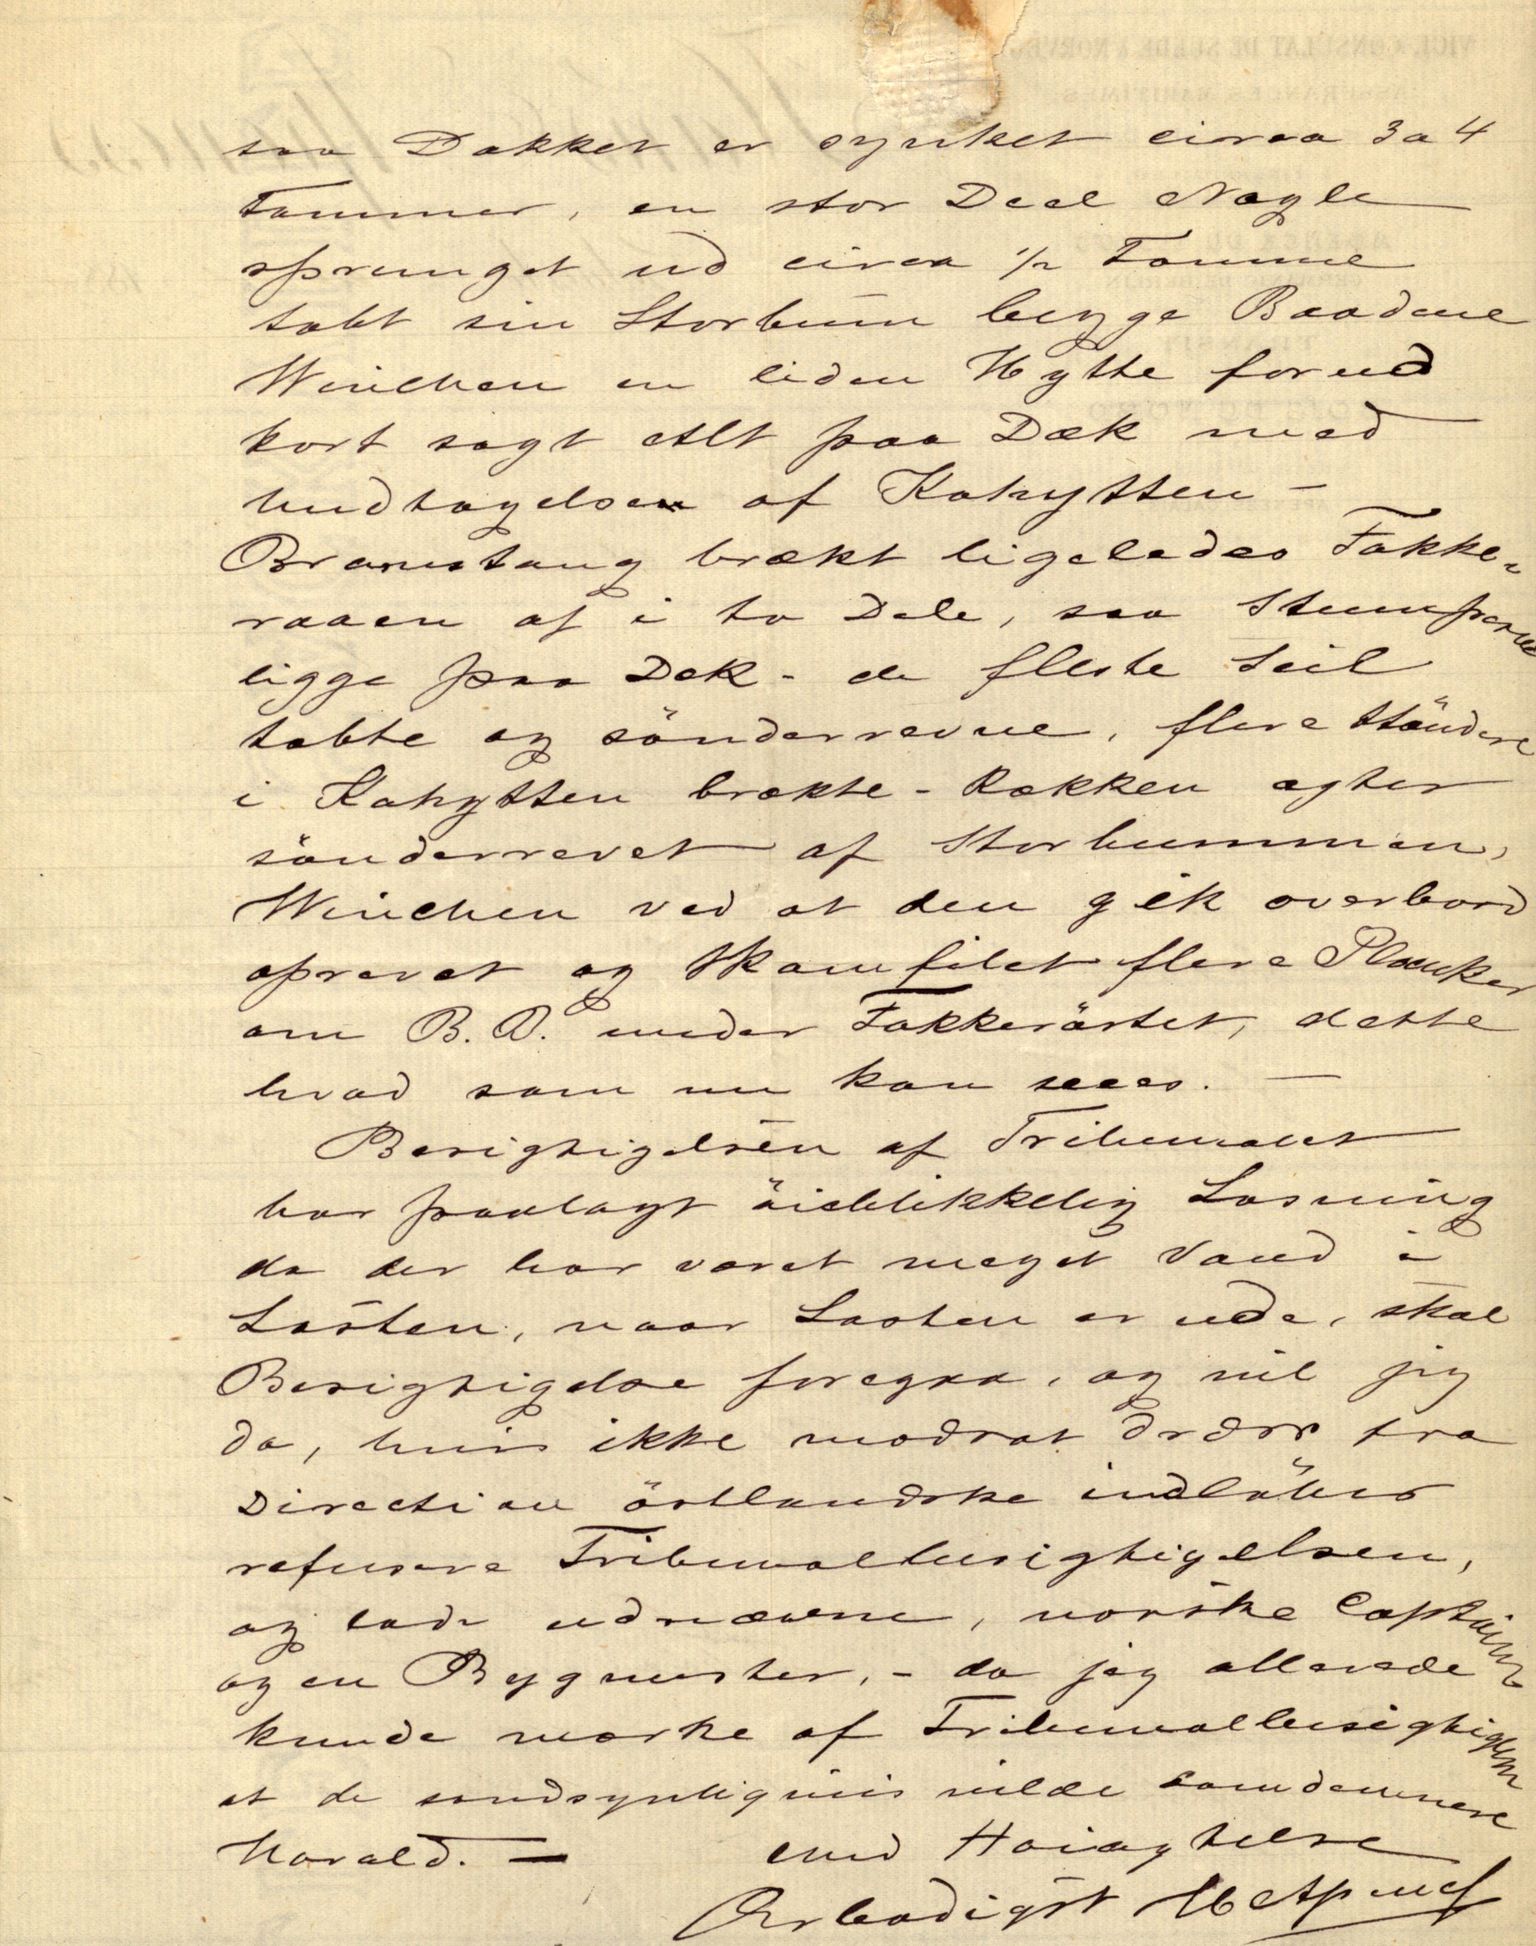 saa Dækket er synket circa 3 a 4
Tommer, en stor Deel Nagle
sprunget ud circa 1/2 Tomme
tabt sin Storbum begge Baadene
Winchen en liden Hytte forud
kort sagt Alt paa Dæk med
Undtagelsen af Kahytten -
Bramstang brækt ligeledes Fokke-
raaen af i to Dele, saa Stumperne
ligge paa Dæk - de fleste Seil
tabte og sönderrevne, flere Stöndere
i Kahytten brækte - Rækken agter
sönderrevet af Storbummen,
Winchen ved at den gik overbord
oprevet og skamfilet flere Planker
om B.B. under Fokkeröstet, dette
hvad som nu kan sees. -
Besigtigelsen af Tribunalet
har paalagt öieblikkelig Losning
da der har været meget Vand i
Lasten, naar Lasten er ude, skal
Besigtigelse foregaa, og vil jeg
da, hvis ikke modsat Ordre fra
Direction östlandske indlöber
refusere Tribunalbesigtigelsen,
og lade udnævne, norske Captainer
og en Bygmester, - da jeg allerede
kunde mærke af Tribunalbesigtigelsen
at de sandsynligviis vilde condemnere
Harald. - med Höiagtelse
Ærbödigst